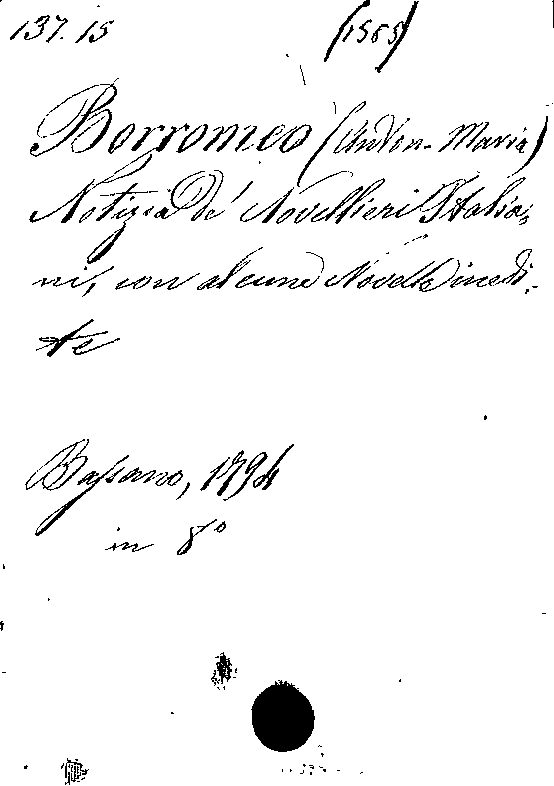 137.15 (1565)
Borromeo (Anton-Maria)
Notizia de' Novellieri Italia-
ni, con alcune Novelle inedi-
te
Bassano, 1794
in 8°